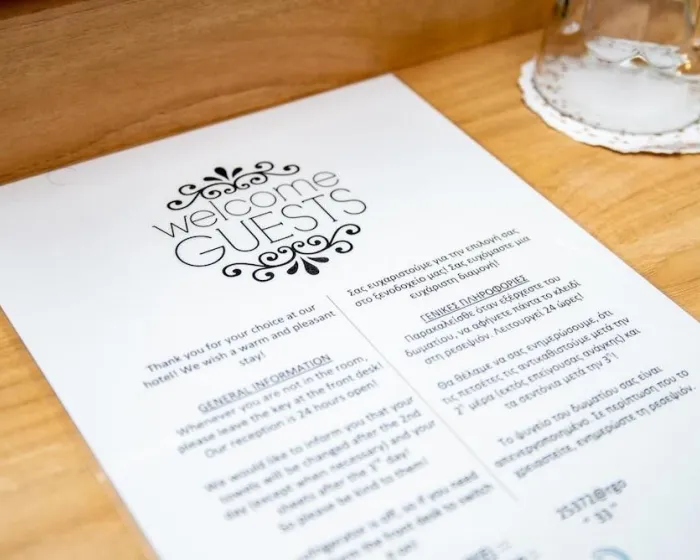 welcome
GUESTS
Thank you for your choice at our
hotel! We wish a warm and pleasant
stay!
GENERAL INFORMATION
Whenever you are not in the room,
please leave the key at the front desk!
Our reception is 24 hours open!
We would like to inform you that your
towels will be changed after the 2nd
day (except when necessary) and your
sheets after the 3rd day!
So please be kind to them!
refrigerator is off, so if you need
the front desk to switch
it on!
Σας ευχαριστούμε για την επιλογή σας
στο ξενοδοχείο μας! Σας ευχόμαστε μια
ευχάριστη διαμονή!
ΓΕΝΙΚΕΣ ΠΛΗΡΟΦΟΡΙΕΣ
Παρακαλείσθε όταν εξέρχεστε του
δωματίου, να αφήνετε πάντα το κλειδί
στη ρεσεψιόν. Λειτουργεί 24 ώρες!
Θα θέλαμε να σας ενημερώσουμε, ότι
τις πετσέτες τις αντικαθιστούμε μετά την
2η μέρα (εκτός επείγουσας ανάγκης) και
τα σεντόνια μετά την 3η!
Το ψυγείο του δωματίου σας είναι
απενεργοποιημένο. Σε περίπτωση που το
χρειαστείτε, ενημερώστε τη ρεσεψιόν